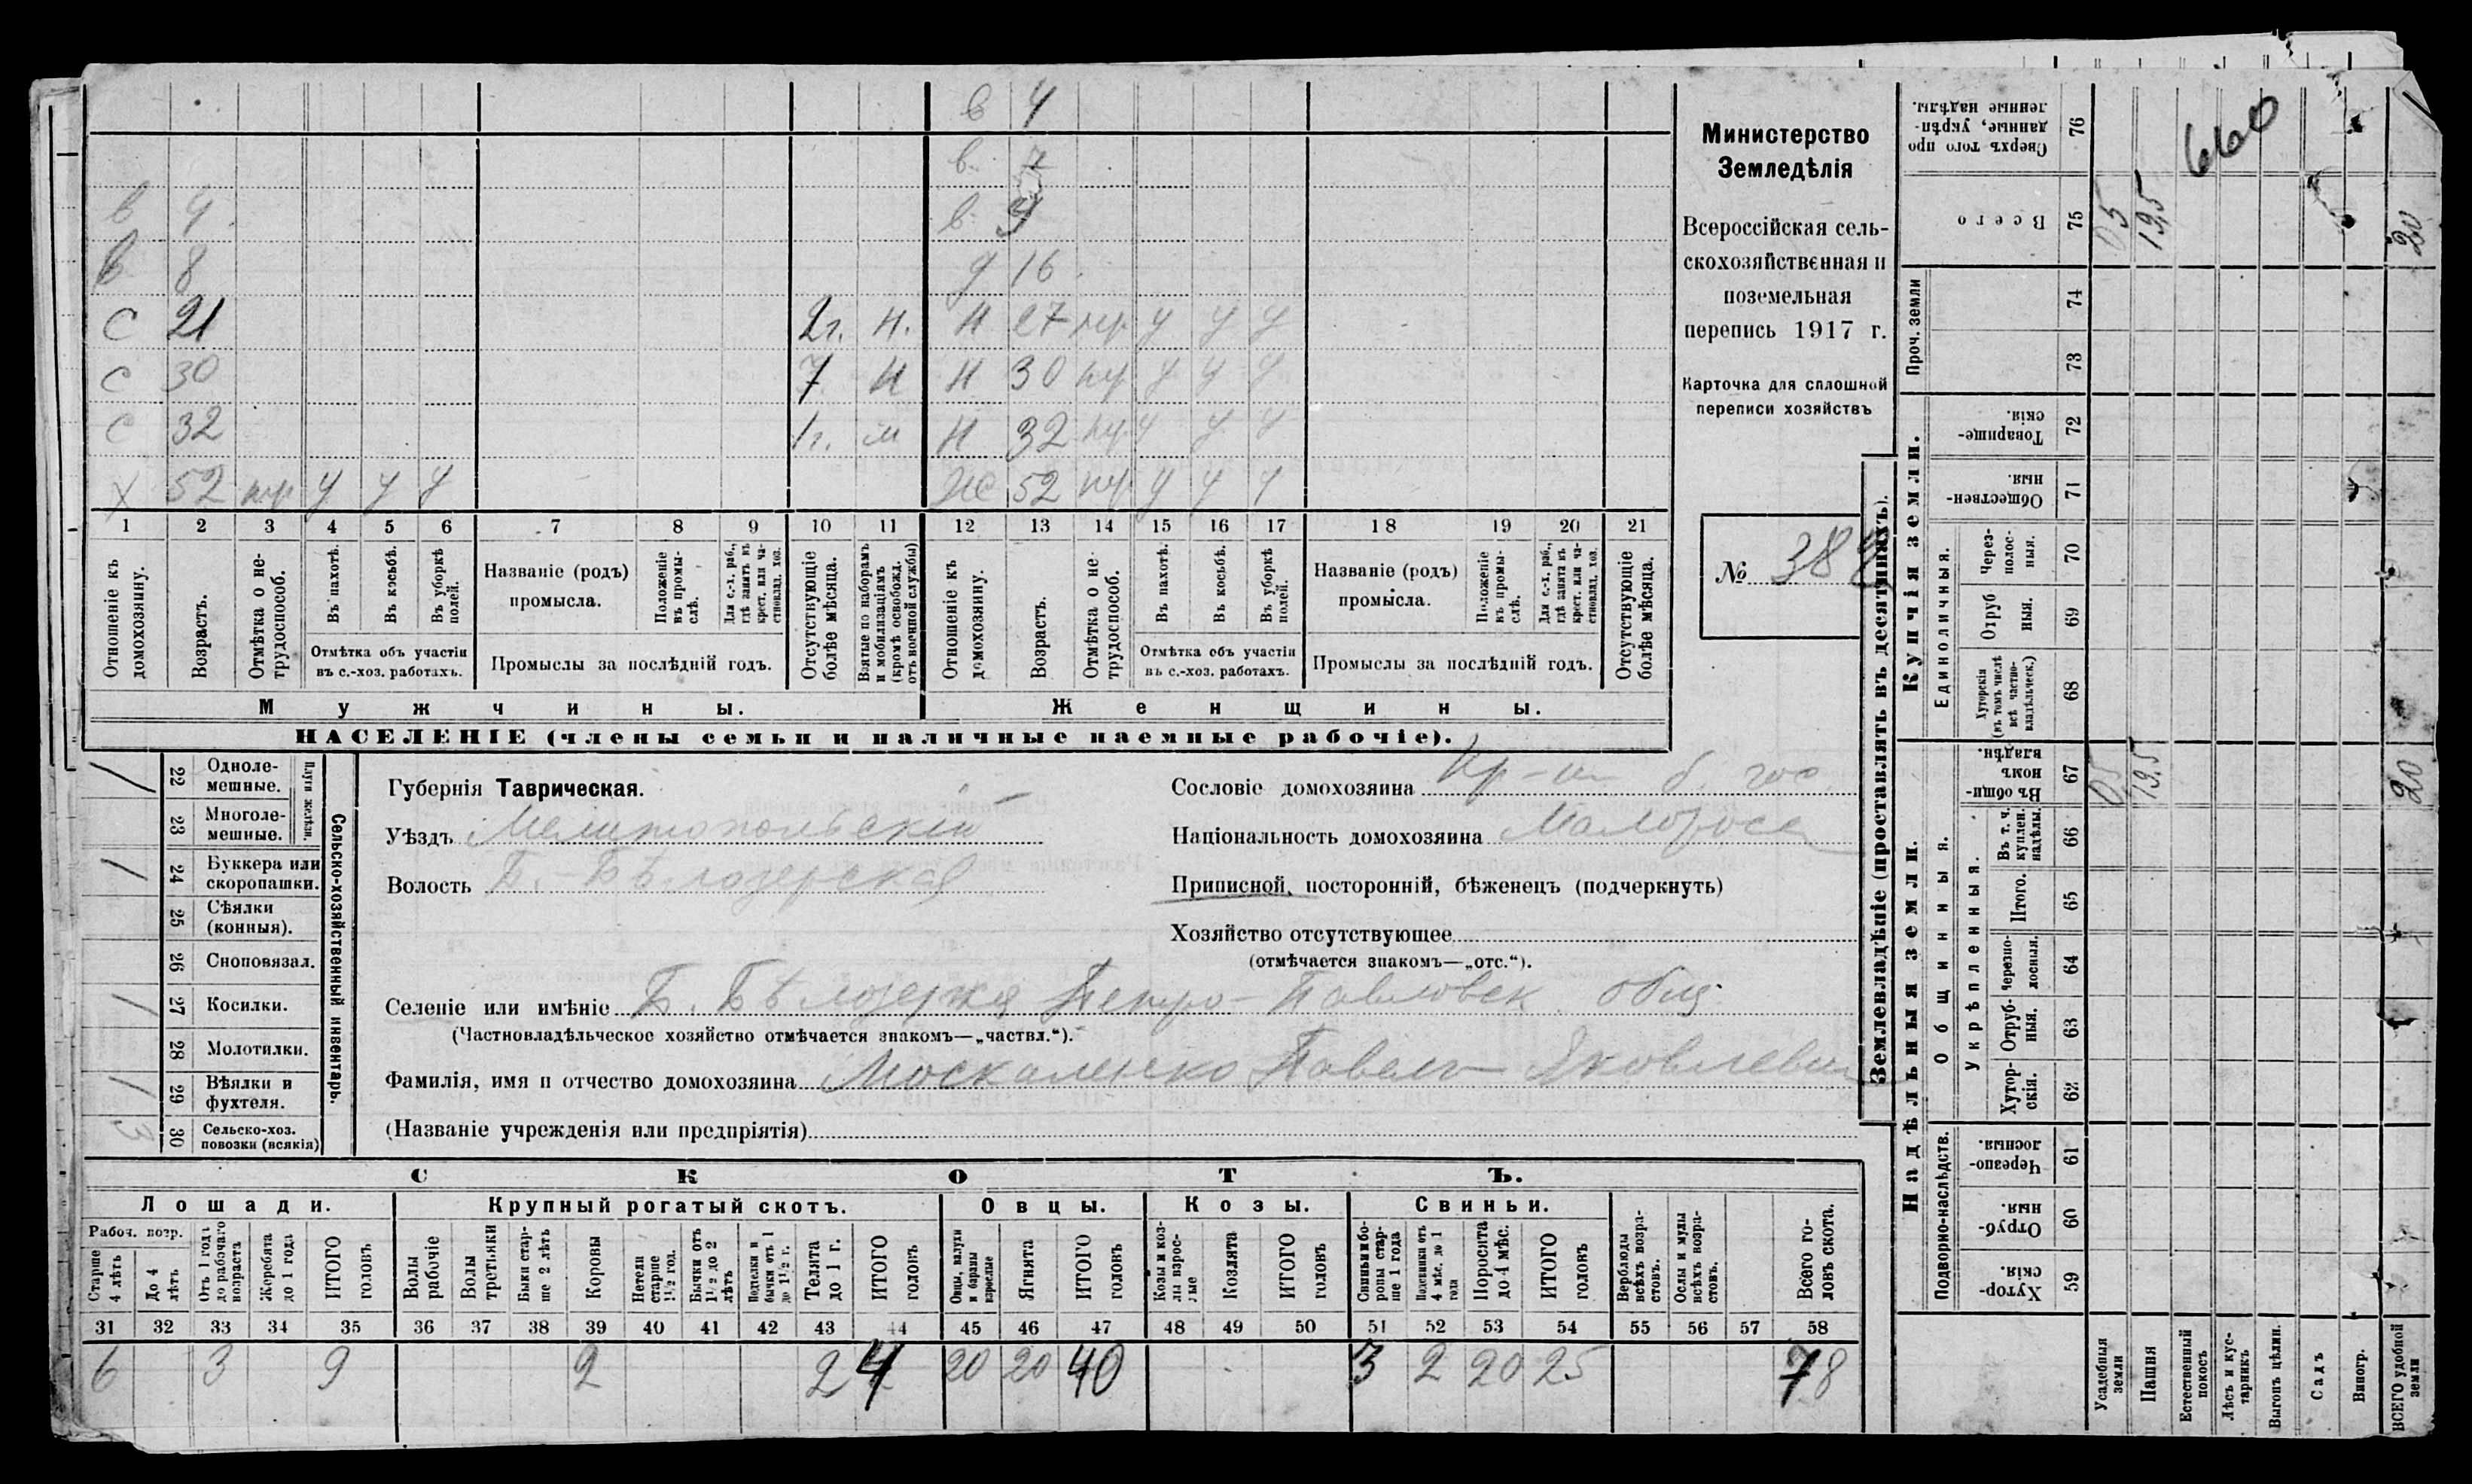 в 4
в. 7
в 4. в. 9
в 8 д 16.
С 21 2г. н. Н 27 нр у у у
С 30 7 Н Н 30 нр у у у
С 32 1г. м Н 32 нр у у у
Х 52 нр у у у Ж 52 нр у у у
1 2 3 4 5 6 7 8 9 10 11 12 13 14 15 16 17 18 19 20 21
Отношеніе къ домохозяину.
Возрастъ.
Отмѣтка о не-трудоспособ.
Въ пахотѣ.
Въ косьбѣ.
Въ уборкѣ полей.
Отмѣтка объ участіи въ с.-хоз. работахъ.
Названіе (родъ) промысла.
Положеніе въ промы-слѣ.
Для с.-х. раб., гдѣ занятъ въ крест. или ча-стновлад. хоз.
Промыслы за послѣдній годъ.
Отсутствующіе болѣе мѣсяца.
Взятые по наборамъ и мобилизаціямъ (кромѣ освобожд. отъ военной службы)
Отношеніе къ домохозяину.
Возрастъ.
Отмѣтка о не трудоспособ.
Въ пахотѣ.
Въ косьбѣ.
Въ уборкѣ полей.
Отмѣтка объ участіи въ с.-хоз. работахъ.
Названіе (родъ) промысла.
Положеніе въ промы-слѣ.
Для с.-х. раб., гдѣ занята въ крест. или ча-стновлад. хоз.
Промыслы за послѣдній годъ.
Отсутствующіе болѣе мѣсяца.
Мужчины.
Женщины.
НАСЕЛЕНІЕ (члены семьи и наличные наемные рабочіе).
Министерство
Земледѣлія
Всероссійская сель-
скохозяйственная и
поземельная
перепись 1917 г.
Карточка для сплошной
переписи хозяйствъ
№ 388
Сельско-хозяйственный инвентарь.
Плуги желѣзн.
22 Одноле-мешные. 1
23 Многоле-мешные.
24 Буккера или скоропашки. 1
25 Сѣялки (конныя).
26 Сноповязал.
27 Косилки. 1
28 Молотилки.
29 Вѣялки и фухтеля. 1
30 Сельско-хоз. повозки (всякія) 3
Губернія Таврическая.
Уѣздъ Мелитопольскій
Волость Б. Бѣлозерская
Сословіе домохозяина Кр-н б. гос.
Національность домохозяина Малоросс
Приписной, посторонній, бѣженецъ (подчеркнуть)
Хозяйство отсутствующее
(отмѣчается знакомъ—„отс.“).
Селеніе или имѣніе Б. Бѣлозерка Петро-Павловск. общ.
(Частновладѣльческое хозяйство отмѣчается знакомъ—„частвл.“).
Фамилія, имя и отчество домохозяина Москаленко Павелъ Яковлевич
(Названіе учрежденія или предпріятія)
СКОТЪ.
Лошади. Крупный рогатый скотъ. Овцы. Козы. Свиньи.
Рабоч. возр.
Старше 4 лѣтъ
До 4 лѣтъ
Отъ 1 года до рабочаго возраста
Жеребята до 1 года
ИТОГО головъ
Волы рабочіе
Волы третьяки
Быки стар-ше 2 лѣтъ
Коровы
Нетели старше 1½ год.
Бычки отъ 1½ до 2 лѣтъ
Подтелки и бычки отъ 1 до 1½ г.
Телята до 1 г.
ИТОГО головъ
Овцы, валухи и бараны взрослые
Ягнята
ИТОГО головъ
Козы и коз-лы взрос-лые
Козлята
ИТОГО головъ
Свиньи и бо-ровы стар-ше 1 года
Подсвинки отъ 4 мѣс. до 1 года
Поросята до 4 мѣс.
ИТОГО головъ
Верблюды всѣхъ возра-стовъ.
Ослы и мулы всѣхъ возра-стовъ.
Всего го-ловъ скота.
31 32 33 34 35 36 37 38 39 40 41 42 43 44 45 46 47 48 49 50 51 52 53 54 55 56 57 58
6 3 9 2 2 4 20 20 40 3 2 20 25 78
Землевладѣніе (проставлять въ десятинахъ).
Надѣльныя земли.
Купчія земли.
Проч. земли
Подворно-наслѣдств.
Общинныя.
Укрѣпленныя.
Единоличныя.
Сверхъ того про данные, укрѣп-ленные надѣлы. 76
Всего 75 05 19,5 20
660
74
73
Товарище-скія. 72
Обществен-ныя. 71
Через-полос-ныя. 70
Отруб ныя. 69
Хуторскія (въ томъ числѣ всѣ частно-владѣльческ.) 68
Въ общи-номъ владѣн. 67 05 19,5 20
Въ т. ч. куплен. надѣлы. 66
Итого. 65
Черезпо-лосныя. 64
Отруб-ныя. 63
Хутор-скія. 62
Черезпо-лосныя. 61
Отруб-ныя. 60
Хутор-скія. 59
Усадебныя земли
Пашня
Естественный покосъ
Лѣсъ и кус-тарникъ
Выгонъ цѣлин.
Садъ
Виногр.
ВСЕГО удобной земли